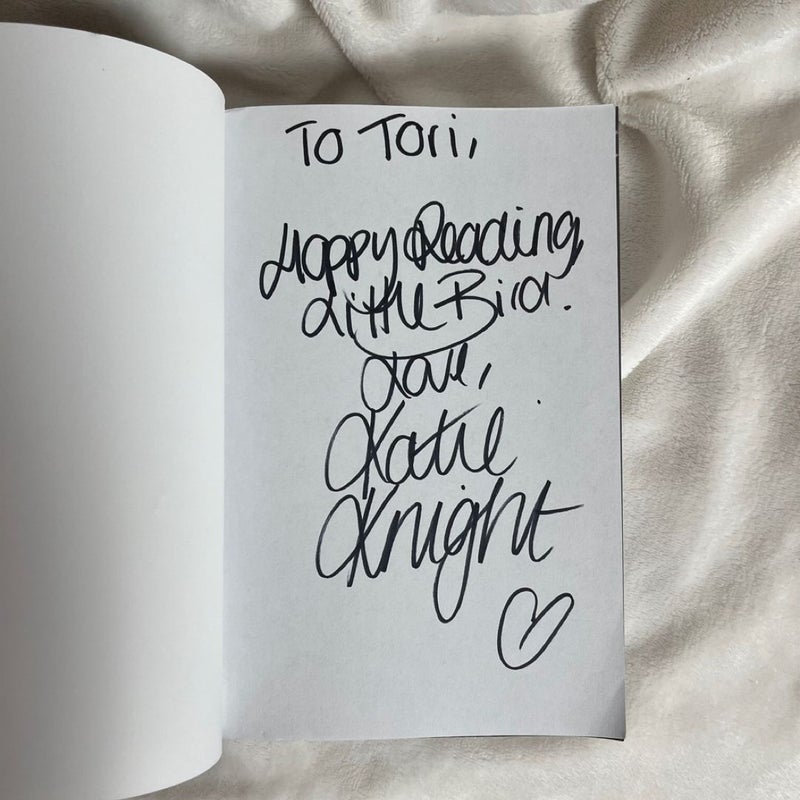 To Tori,
Happy Reading
Little Bird.
Love,
Katie
Knight